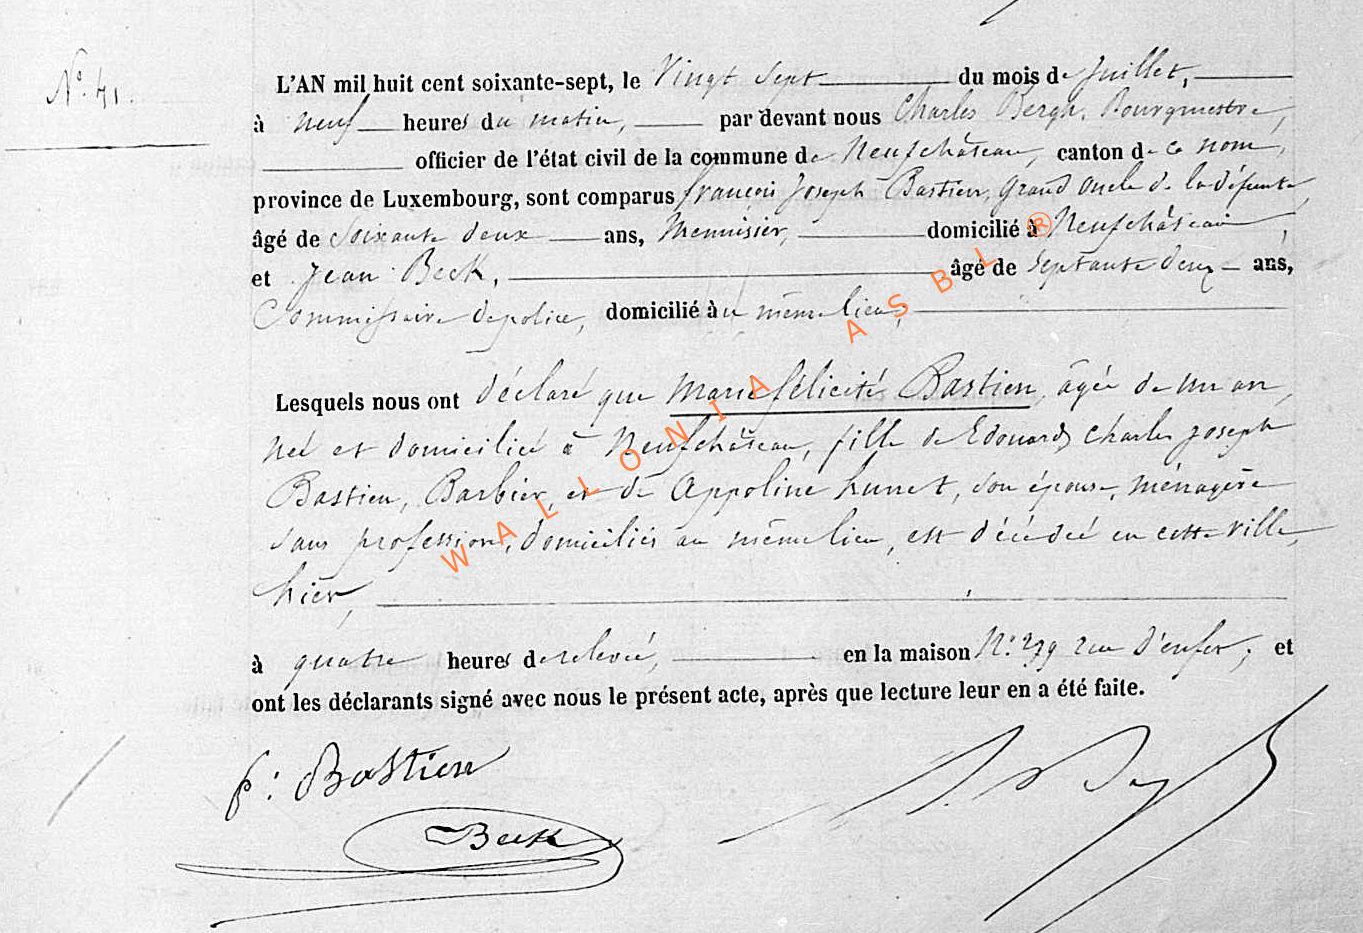 N° 41.
L'AN mil huit cent soixante-sept, le Vingt sept du mois de Juillet,
à neuf heures du matin, par devant nous Charles Bergh, Bourgmestre,
officier de l'état civil de la commune de Neufchâteau, canton de ce nom,
province de Luxembourg, sont comparus françois Joseph Bastien, grand oncle de la défunte,
âgé de soixante deux ans, Menuisier, domicilié à Neufchâteau,
et Jean Beck, âgé de septante deux ans,
Commissaire de police, domicilié à u même lieu,
Lesquels nous ont déclaré que Marie félicité Bastien, âgée de un an,
née et domiciliée à Neufchâteau, fille de Edouard, Charles Joseph
Bastien, Barbier, et de Appoline hunet, son épouse, ménagère
sans profession, domiciliés au même lieu, est décédée en cette ville,
hier,
à quatre heures de relevée, en la maison N° 239 rue d'enfer, et
ont les déclarants signé avec nous le présent acte, après que lecture leur en a été faite.
f: Bastien
Beck
WALLONIA ASBL ®